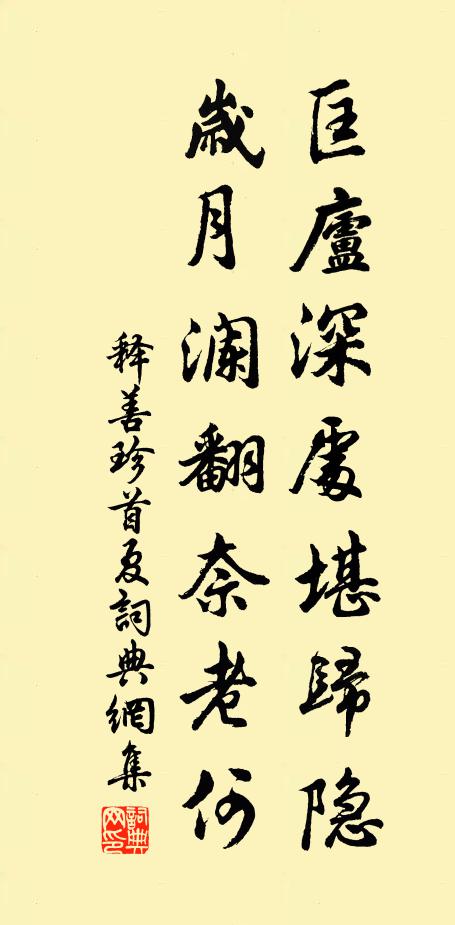 匡廬深處堪歸隐
歲月瀾翻奈老何
释善珍首夏詞典網集
詞典网印